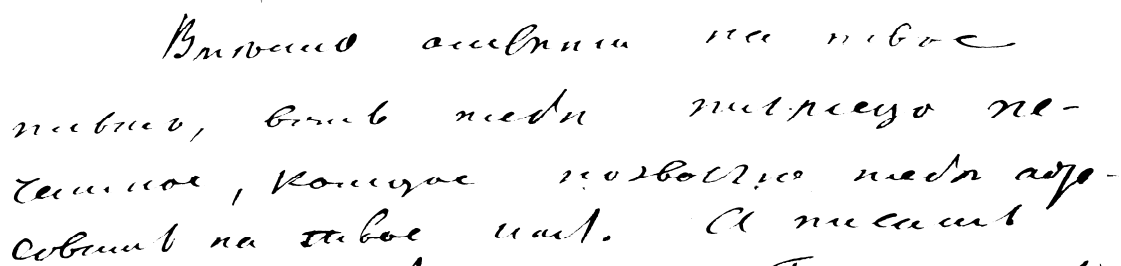 Вместо ответа на твое
письмо, вот тебе письмецо пе-
чатное, которое позволю тебе адре-
совать на твое имя. А писать